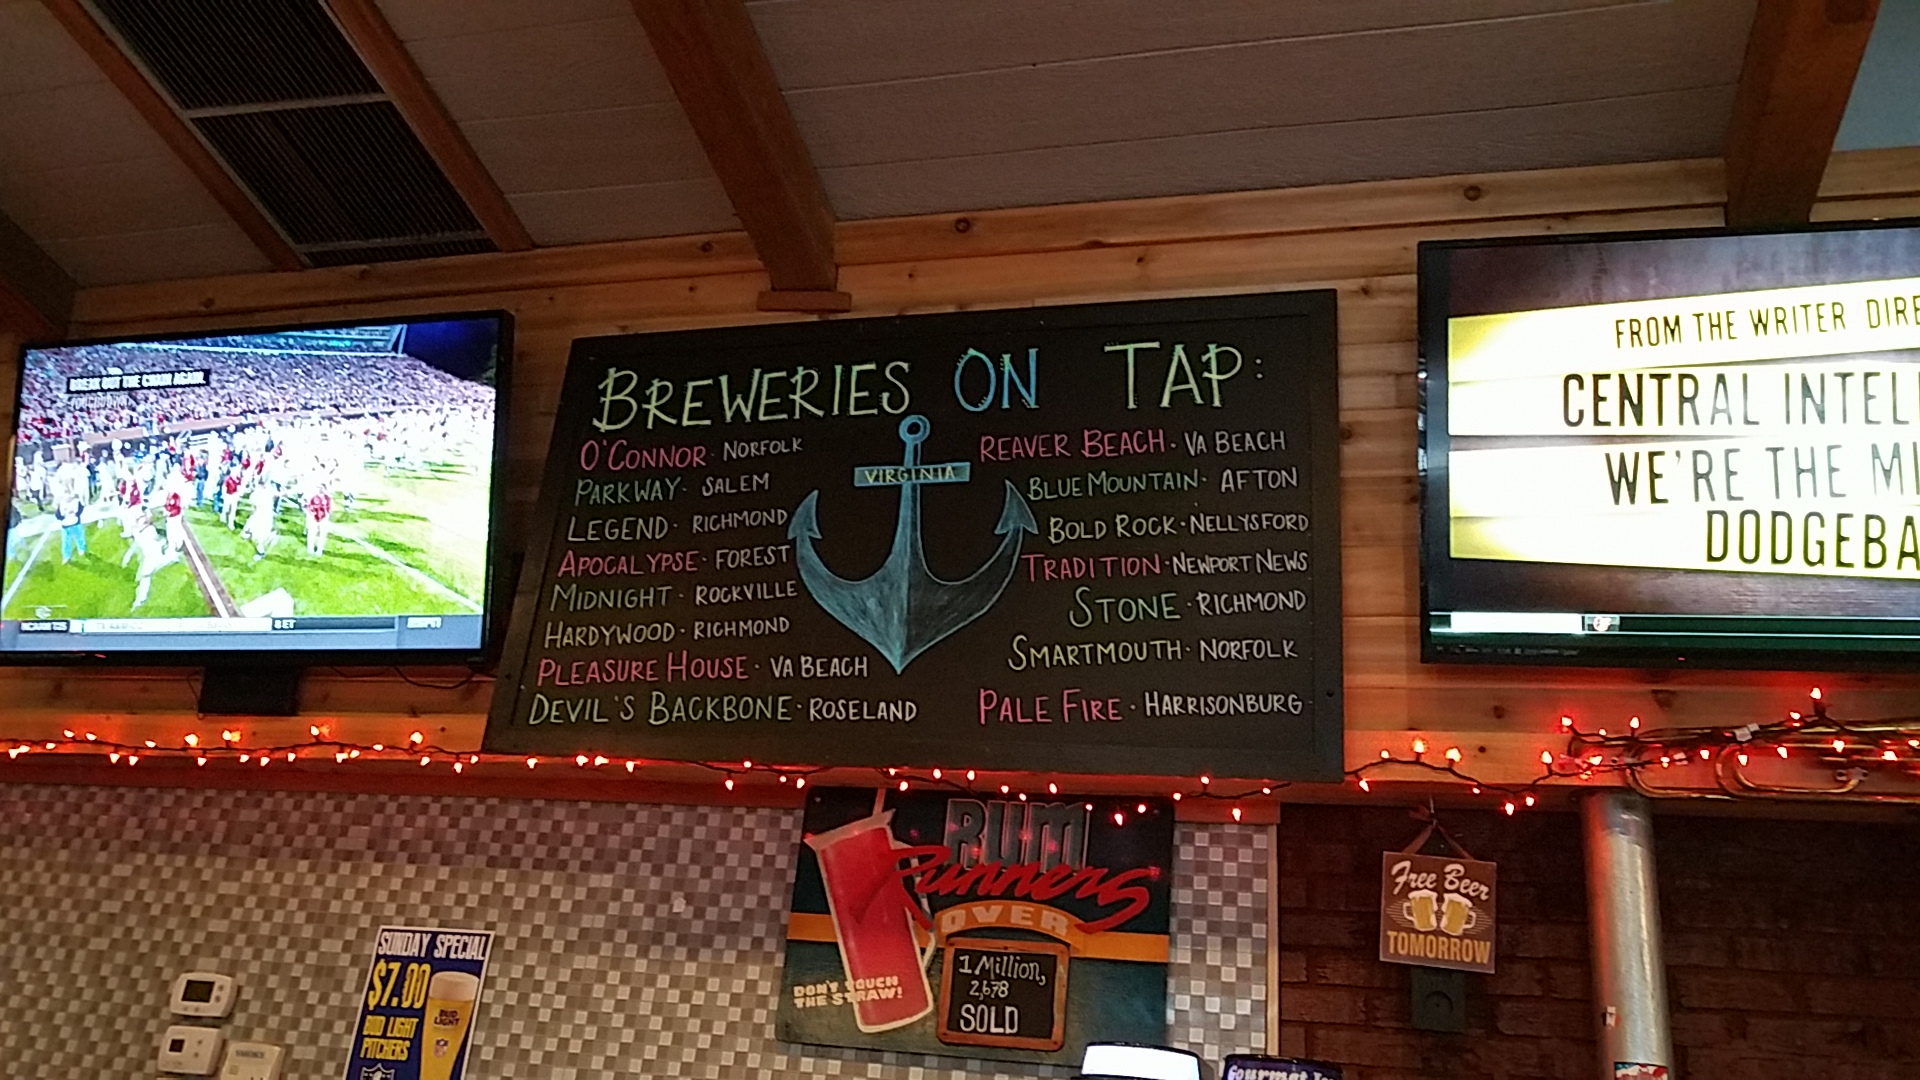 BREAK OUT THE CHAIN AGAIN.
TOUCHDOWN.
BREWERIES ON TAP:
VIRGINIA
O'CONNOR · NORFOLK
PARKWAY · SALEM
LEGEND · RICHMOND
APOCALYPSE · FOREST
MIDNIGHT · ROCKVILLE
HARDYWOOD · RICHMOND
PLEASURE HOUSE · VA BEACH
DEVIL'S BACKBONE · ROSELAND
REAVER BEACH · VA BEACH
BLUE MOUNTAIN · AFTON
BOLD ROCK · NELLYSFORD
TRADITION · NEWPORT NEWS
STONE · RICHMOND
SMARTMOUTH · NORFOLK
PALE FIRE · HARRISONBURG
FROM THE WRITER/DIRE
CENTRAL INTEL
WE'RE THE MI
DODGEBA
8 ET
ESPN
RUM
Runners
OVER
1 Million,
2,678
SOLD
DON'T TOUCH
THE STRAW!
Free Beer
TOMORROW
SUNDAY SPECIAL
$7.00
BUD LIGHT
PITCHERS
BUD
LIGHT
NFL
Gourmet